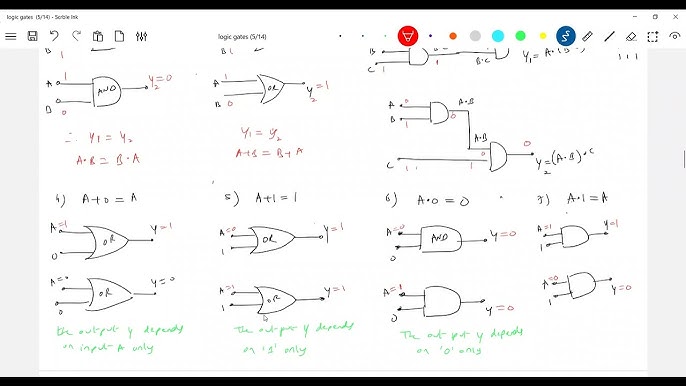 logic gates (5/14) - Scrble Ink
logic gates (5/14)
B 1
A 1
AND
B 0
Y2 = 0
∴ Y1 = Y2
A·B = B·A
A 1
OR
B 0
Y2 = 1
Y1 = Y2
A+B = B+A
B
C 1
1
B·C
1
Y1 = A·(B
1 1 1
A 0
B 1
A·B
0
A·B
0
C 1
1
0
Y2 = (A·B)·C
4) A+0 = A
A=1
OR
0
Y=1
A=0
OR
0
Y=0
the output y depends
on input A only
5) A+1 = 1
A=0
OR
1
Y=1
A=1
OR
1
Y=1
The output y depends
on '1' only
6) A·0 = 0
A=0
AND
0
Y=0
A=1
0
Y=0
The output y depends
on '0' only
7) A·1 = A
A=1
1
Y=1
A=0
1
Y=0